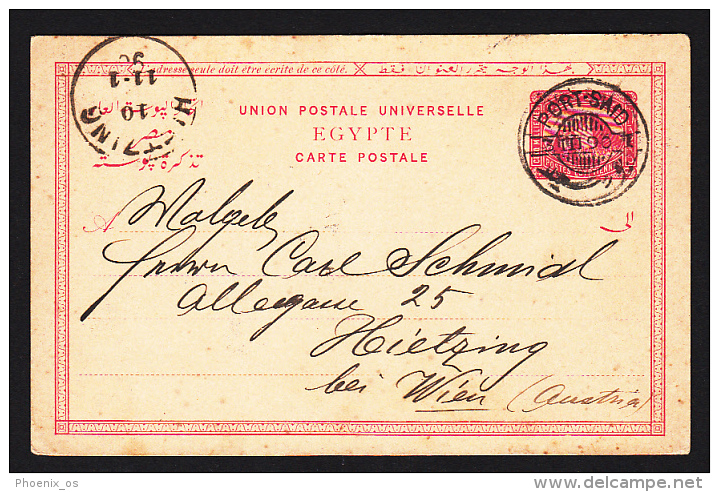 adresse seule doit être écrite de ce côté.
UNION POSTALE UNIVERSELLE
EGYPTE
CARTE POSTALE
تذكرة بوستة
مصر
HIETZING
10
11·1
96
PORT-SAID
A
الى
Herrn Carl Schmidl
Allegasse 25
Hietzing
bei Wien (Austria)
Phoenix_os
www.delcampe.net